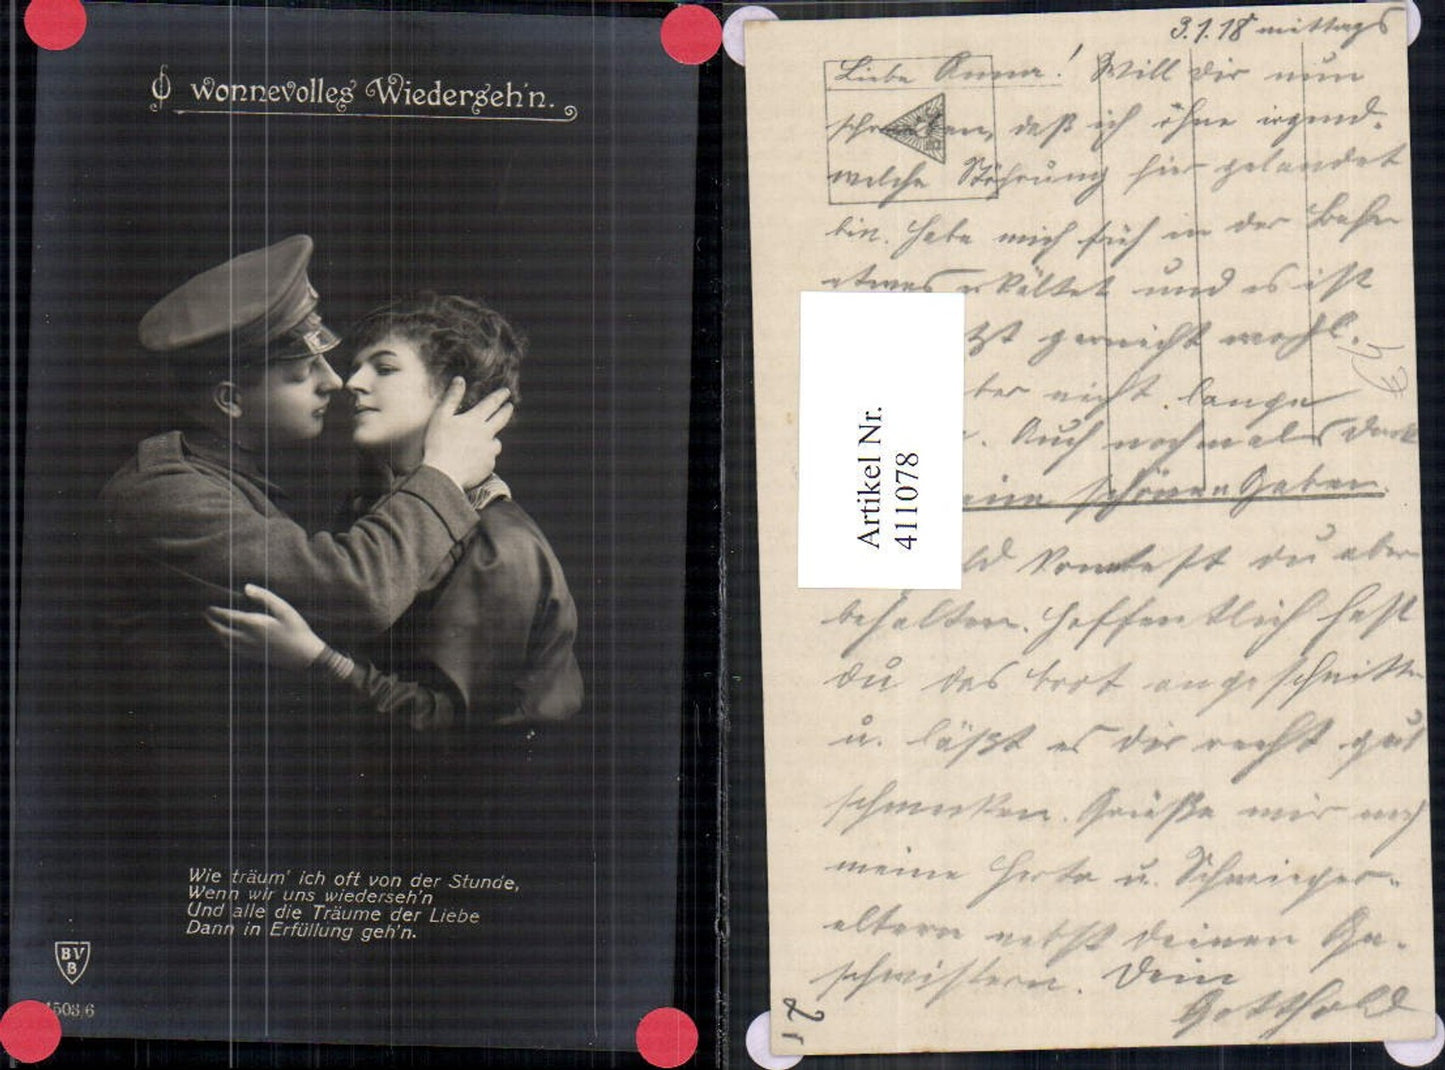 O wonnevolles Wiederseh'n.
Wie träum' ich oft von der Stunde,
Wenn wir uns wiederseh'n
Und alle die Träume der Liebe
Dann in Erfüllung geh'n.
BV
B
4503/6
3.1.18 mittags
Liebe Anna! Will dir nun
daß ich ohne irgend-
welche Störung hier gelandet
bin. Habe mich in der Bahn
etwas erkältet und es ist
wohl.
nicht lange
Auch nochmals Dank
schönen Gaben.
konntest du aber
behalten. Hoffentlich hast
du das Brot angeschnitten
u. läßt es dir recht gut
schmecken. Grüße mir noch
meine u. Schwieger-
eltern nebst deinen Ge-
schwistern. Dein
Gotthold
Artikel Nr.
411078